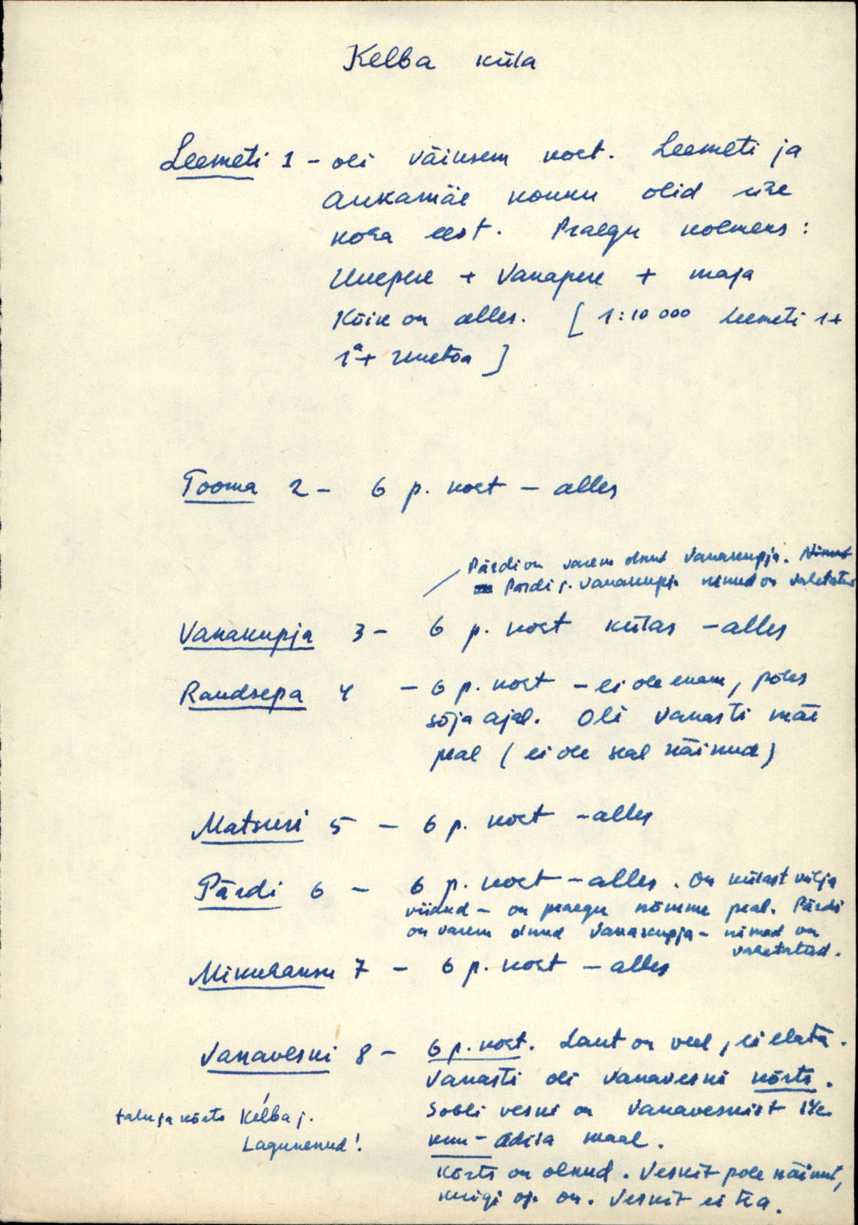 Kelba küla
Leemeti 1 - oli väiksem koct. Leemeti ja
Aukamäe kokku olid ühe
koha eest. Praegu kolmeks:
Uuepere + Vanapere + maja
Kõik on alles. [1:10 000 Leemeti 1+
1a+ Uuetoa]
Tooma 2 - 6 p. koct - alles
Pärdi on varem olnud Vanakupja. Nimed
Pärdi j. Vanakupja nimed on vahetatud
Vanakupja 3 - 6 p. koct külas - alles
Raudsepa 4 - 6 p. koct - ei ole enam, põles
sõja ajal. Oli vanasti mäe
peal (ei ole seal näinud)
Matsuri 5 - 6 p. koct - alles
Pärdi 6 - 6 p. koct - alles. On külast välja
viidud - on praegu nõmme peal. Pärdi
on varem olnud Vanakupja - nimed on
vahetatud.
Mikuhansu 7 - 6 p. koct - alles
Vanaveski 8 - 6 p. koct. Laut on veel, ei elata.
Vanasti oli Vanaveski kõrts.
talu ja kõrts Kelba j.
Sobli veski on Vanaveskist
Lagunenud!
maal.
Kõrts on olnud. Veskit pole näinud,
kuigi on. Veskit ei tea.